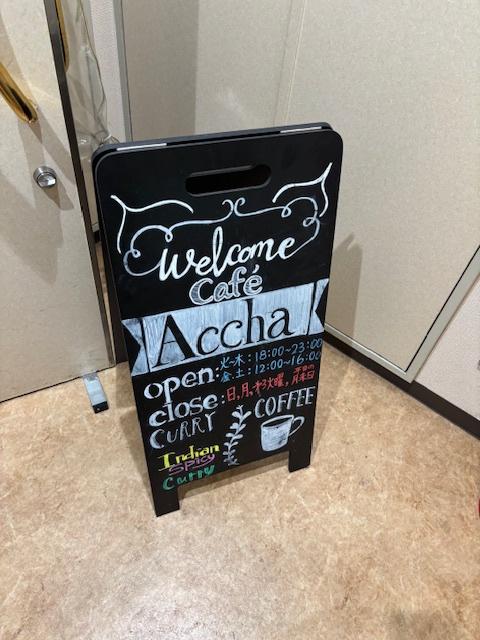 Welcome
Café
Accha
open: 火~木: 18:00~23:00
金.土: 12:00~16:00
close: 日,月,
CURRY COFFEE
Indian
Spicy
Curry